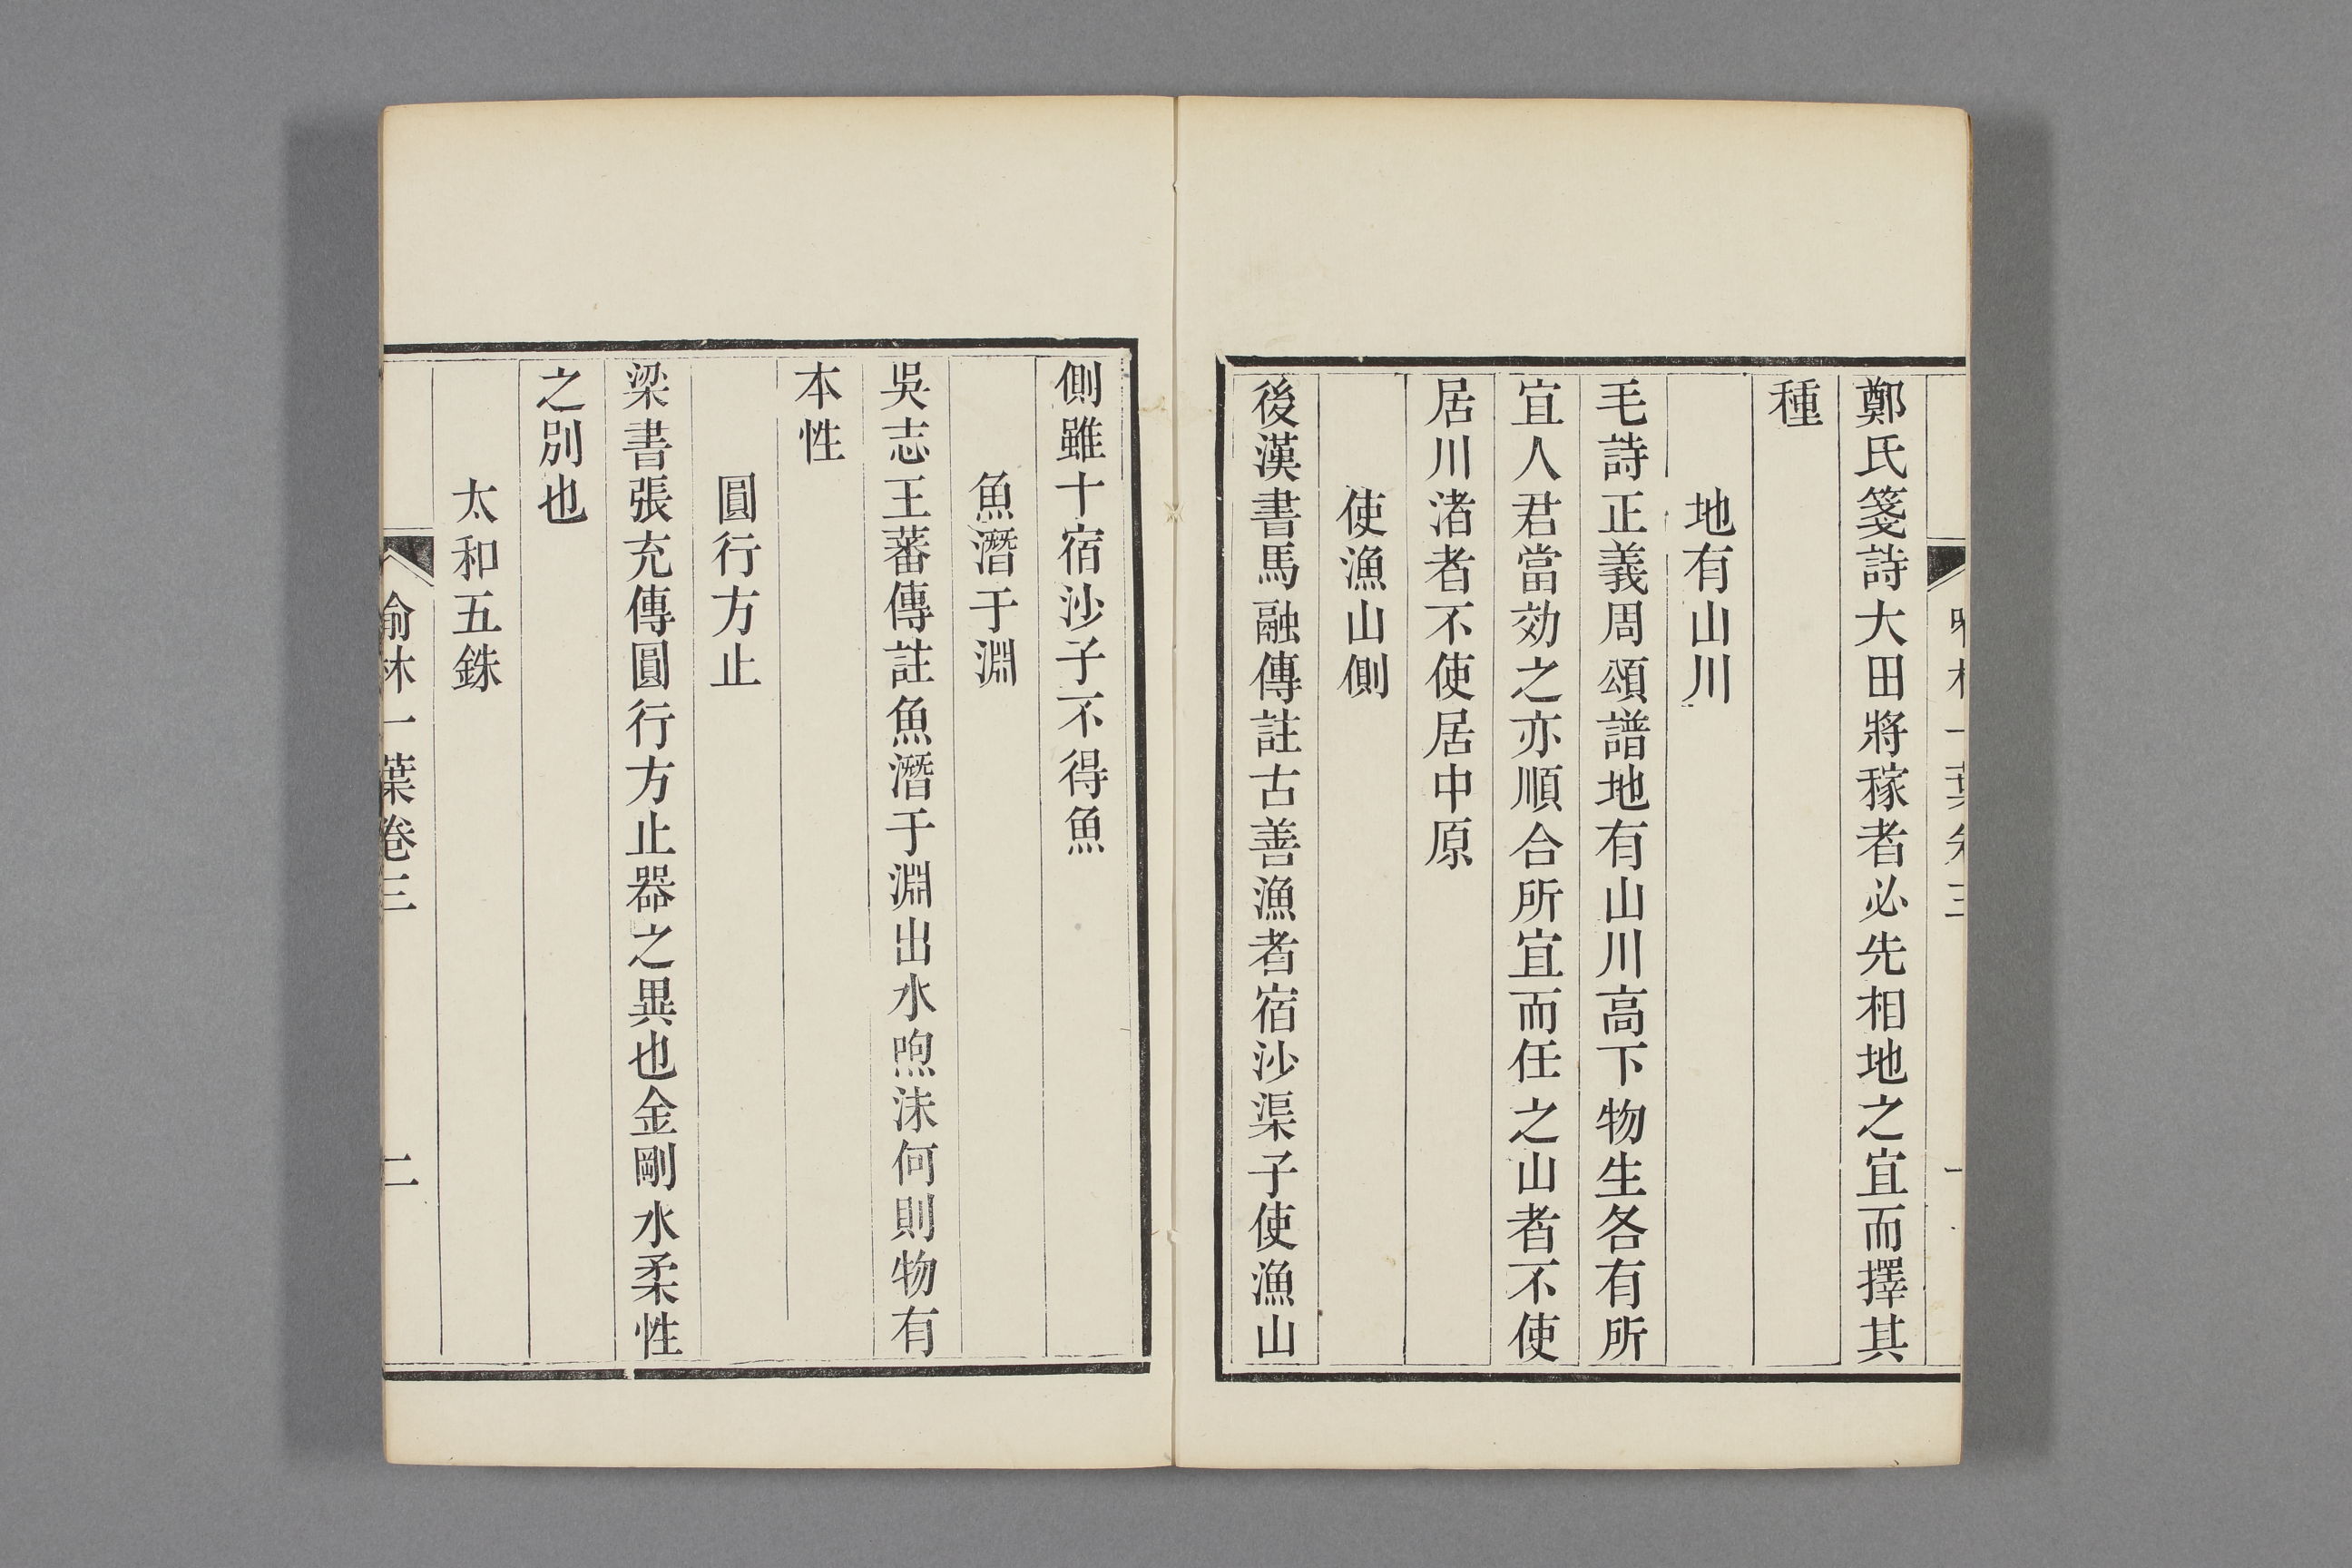 鄭氏箋詩大田將稼者必先相地之宜而擇其
種
地有山川
毛詩正義周頌譜地有山川高下物生各有所
宜人君當効之亦順合所宜而任之山者不使
居川渚者不使居中原
使漁山側
後漢書馬融傳註古善漁者宿沙渠子使漁山
側雖十宿沙子不得魚
魚潛于淵
吳志王蕃傳註魚潛于淵出水喣沫何則物有
本性
圓行方止
梁書張充傳圓行方止器之異也金剛水柔性
之別也
太和五銖
喻林一葉卷三
二